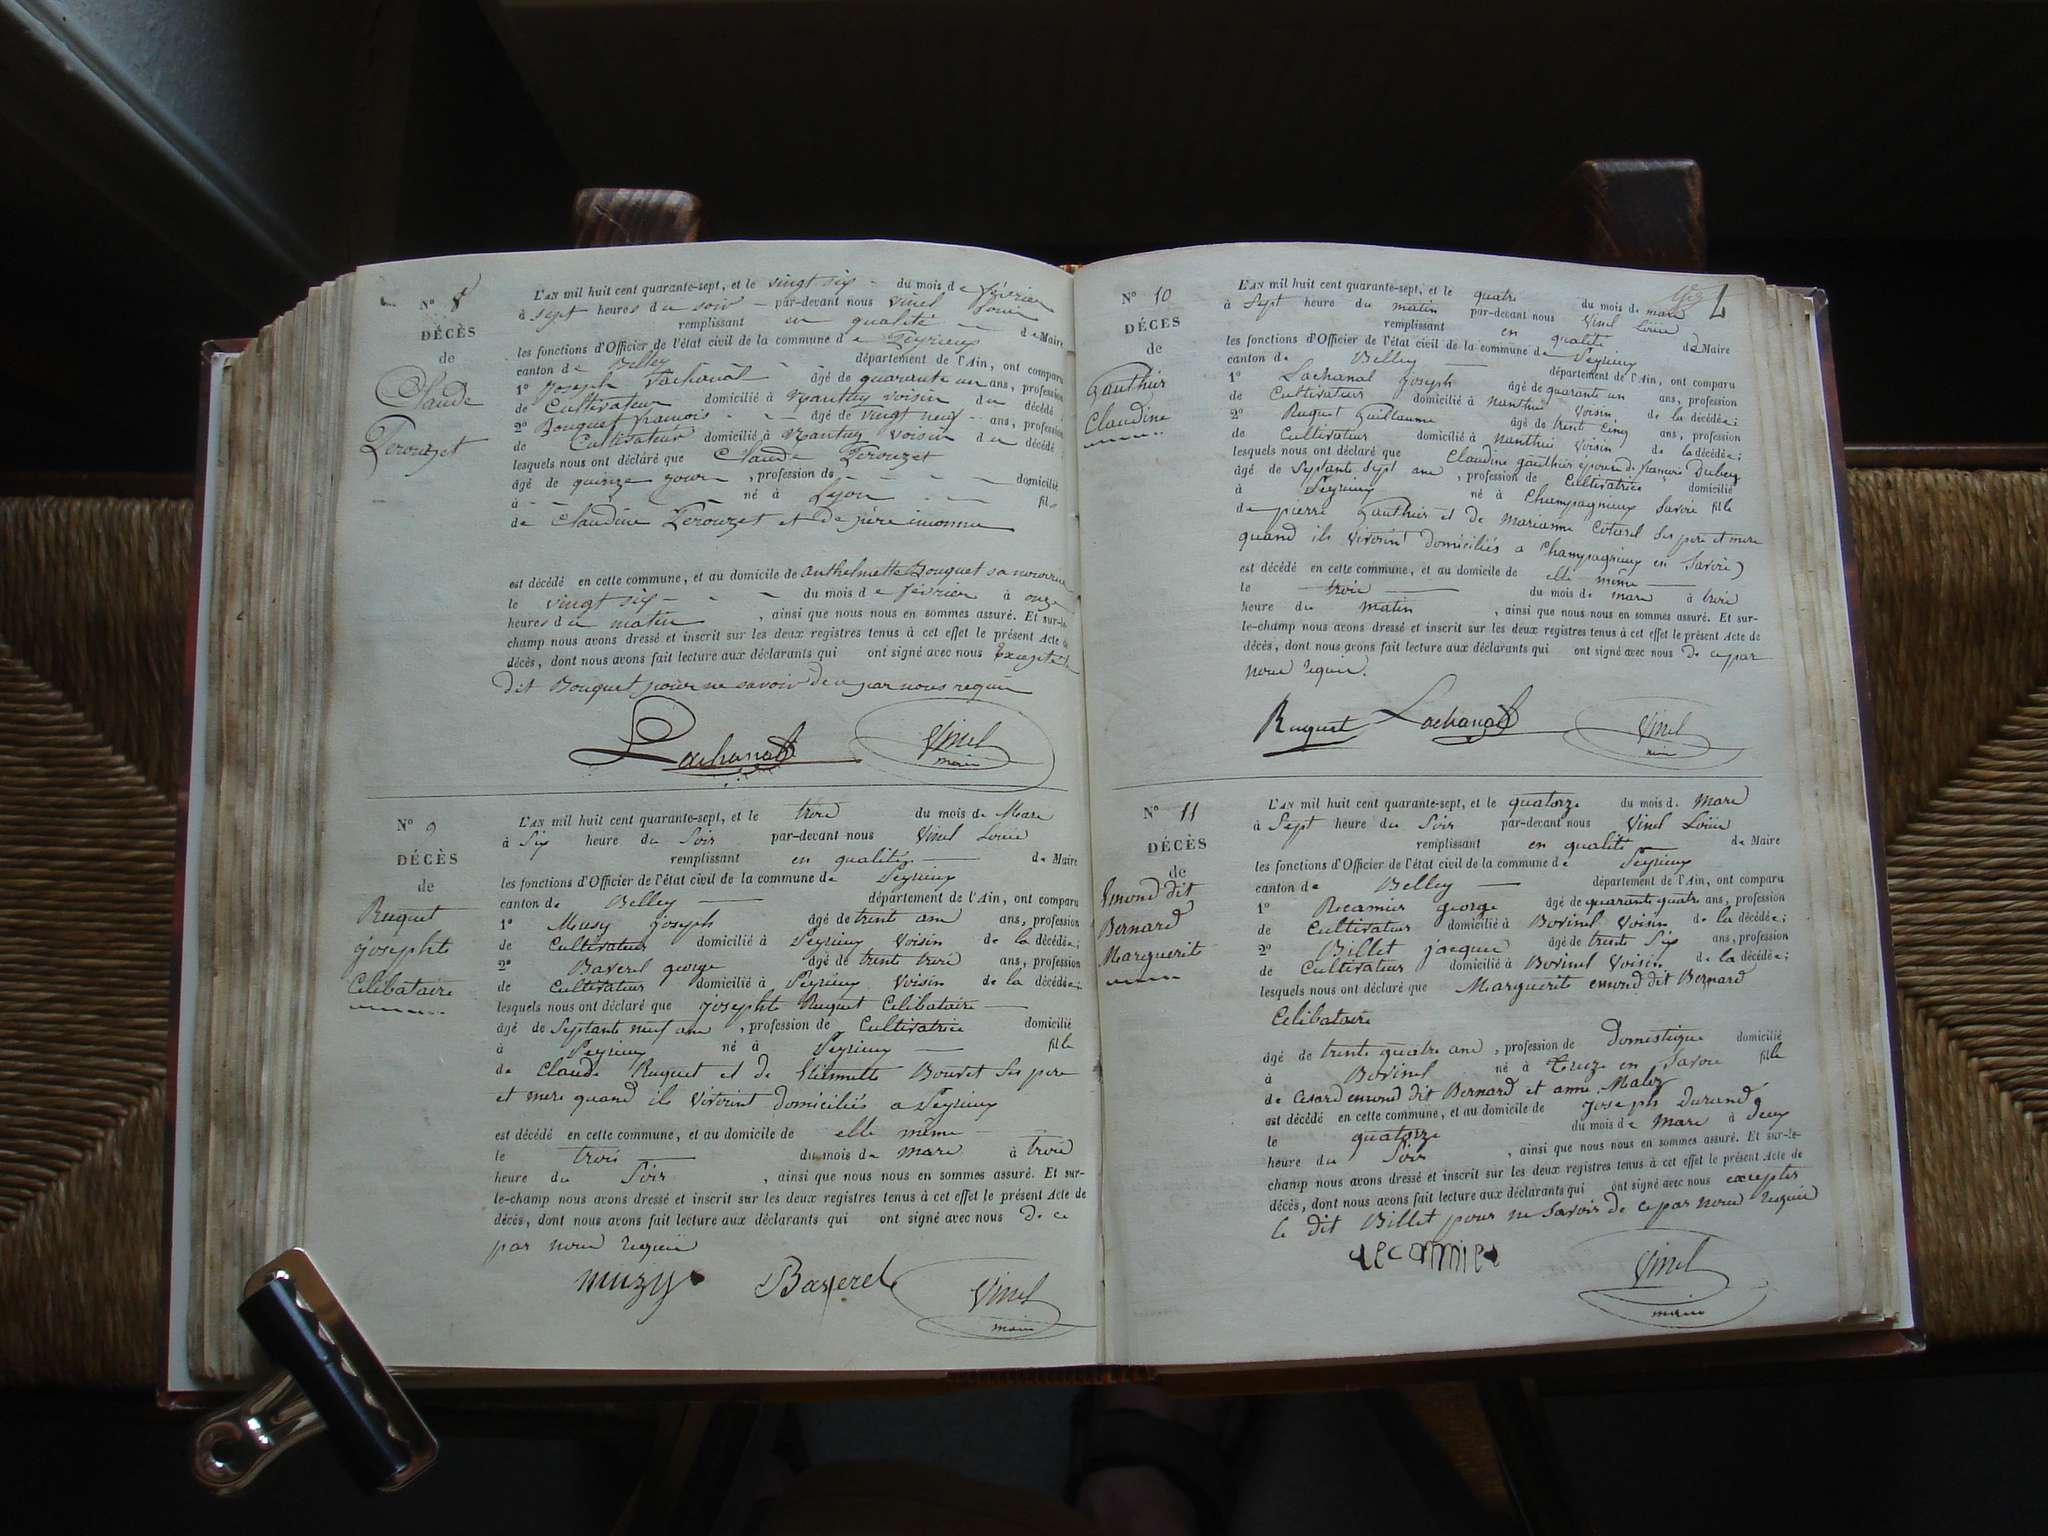 N° 8
DÉCÈS
de
Claude
Perouzet
L'AN mil huit cent quarante-sept, et le vingt six du mois de février
à sept heures du soir par-devant nous Vinel Louis
remplissant en qualité de Maire
les fonctions d'Officier de l'état civil de la commune de Peyrieu
canton de Belley département de l'Ain, ont comparu
1° Joseph Lachanal âgé de quarante un ans, profession
de Cultivateur domicilié à Nantuy voisin du décédé
2° Bouquet francois âgé de vingt neuf ans, profession
de Cultivateur domicilié à Nantuy Voisin du décédé
lesquels nous ont déclaré que Claude Perouzet
âgé de quinze jours, profession de domicilié
à né à Lyon fil
de Claudine Perouzet et de père inconnu
est décédé en cette commune, et au domicile de anthelmette Bouquet sa nourrice
le vingt six du mois de février à onze
heures du matin, ainsi que nous nous en sommes assuré. Et sur-le-
champ nous avons dressé et inscrit sur les deux registres tenus à cet effet le présent Acte de
décès, dont nous avons fait lecture aux déclarants qui ont signé avec nous Excepté le
dit Bouquet pour ne savoir de ce par nous requis
Lachanal Vinel
maire
N° 9
DÉCÈS
de
Ruquet
josephte
Celibataire
L'AN mil huit cent quarante-sept, et le trois du mois de Mars
à Six heure du Soir par-devant nous Vinel Louis
remplissant en qualité de Maire
les fonctions d'Officier de l'état civil de la commune de Peyrieu
canton de Belley département de l'Ain, ont comparu
1° Musy joseph âgé de trente ans ans, profession
de Cultivateur domicilié à Peyrieu Voisin de la décédée;
2° Baverel george âgé de trente trois ans, profession
de Cultivateur domicilié à Peyrieu Voisin de la décédée;
lesquels nous ont déclaré que josephte Ruquet Celibataire
âgé de Septante neuf ans, profession de Cultivatrice domicilié
à Peyrieu né à Peyrieu fille
de Claude Ruquet et de Bouvet Ses pere
et mere quand ils Vivoient domiciliés a Peyrieu
est décédé en cette commune, et au domicile de elle même
le trois du mois de mars à trois
heure du Soir, ainsi que nous nous en sommes assuré. Et sur-
le-champ nous avons dressé et inscrit sur les deux registres tenus à cet effet le présent Acte de
décès, dont nous avons fait lecture aux déclarants qui ont signé avec nous de ce
par nous requis
muzy Baverel Vinel
maire
N° 10
DÉCÈS
de
Gauthier
Claudine
L'AN mil huit cent quarante-sept, et le quatre du mois de mars
à Sept heure du matin par-devant nous Vinel Louis
remplissant en qualité de Maire
les fonctions d'Officier de l'état civil de la commune de Peyrieu
canton de Belley département de l'Ain, ont comparu
1° Lachanal joseph âgé de quarante un ans, profession
de Cultivateur domicilié à Nanthui Voisin de la décédée;
2° Ruquet Guillaume âgé de trente Cinq ans, profession
de Cultivateur domicilié à Nanthui Voisin de la décédée;
lesquels nous ont déclaré que Claudine gauthier épouse de francois
âgé de Septante Sept ans, profession de Cultivatrice domicilié
à Peyrieu né à Champagnieux Savoie fille
de pierre Gauthier et de Marianne Cotarel Ses pere et mere
quand ils Vivoient domiciliés a Champagnieux en Savoie
est décédé en cette commune, et au domicile de elle même
le trois du mois de mars à trois
heure du matin, ainsi que nous nous en sommes assuré. Et sur-
le-champ nous avons dressé et inscrit sur les deux registres tenus à cet effet le présent Acte de
décès, dont nous avons fait lecture aux déclarants qui ont signé avec nous de ce par
nous requis.
Ruquet Lachanal Vinel
maire
N° 11
DÉCÈS
de
Emond dit
Bernard
Marguerite
L'AN mil huit cent quarante-sept, et le quatorze du mois de Mars
à Sept heure du Soir par-devant nous Vinel Louis
remplissant en qualité de Maire
les fonctions d'Officier de l'état civil de la commune de Peyrieu
canton de Belley département de l'Ain, ont comparu
1° Recamier george âgé de quarante quatre ans, profession
de Cultivateur domicilié à Bovinel Voisin de la décédée;
2° Billet jacques âgé de trente Six ans, profession
de Cultivateur domicilié à Bovinel Voisin de la décédée;
lesquels nous ont déclaré que Marguerite emond dit Bernard
Celibataire
âgé de trente quatre ans, profession de Domestique domicilié
à Bovinel né à en Savoie fille
de Cesard emond dit Bernard et anne
est décédé en cette commune, et au domicile de joseph Durand
le quatorze du mois de Mars à deux
heure du Soir, ainsi que nous nous en sommes assuré. Et sur-le-
champ nous avons dressé et inscrit sur les deux registres tenus à cet effet le présent Acte de
décès, dont nous avons fait lecture aux déclarants qui ont signé avec nous excepter
le dit Billet pour ne Savoir de ce par nous requis
recamier Vinel
maire